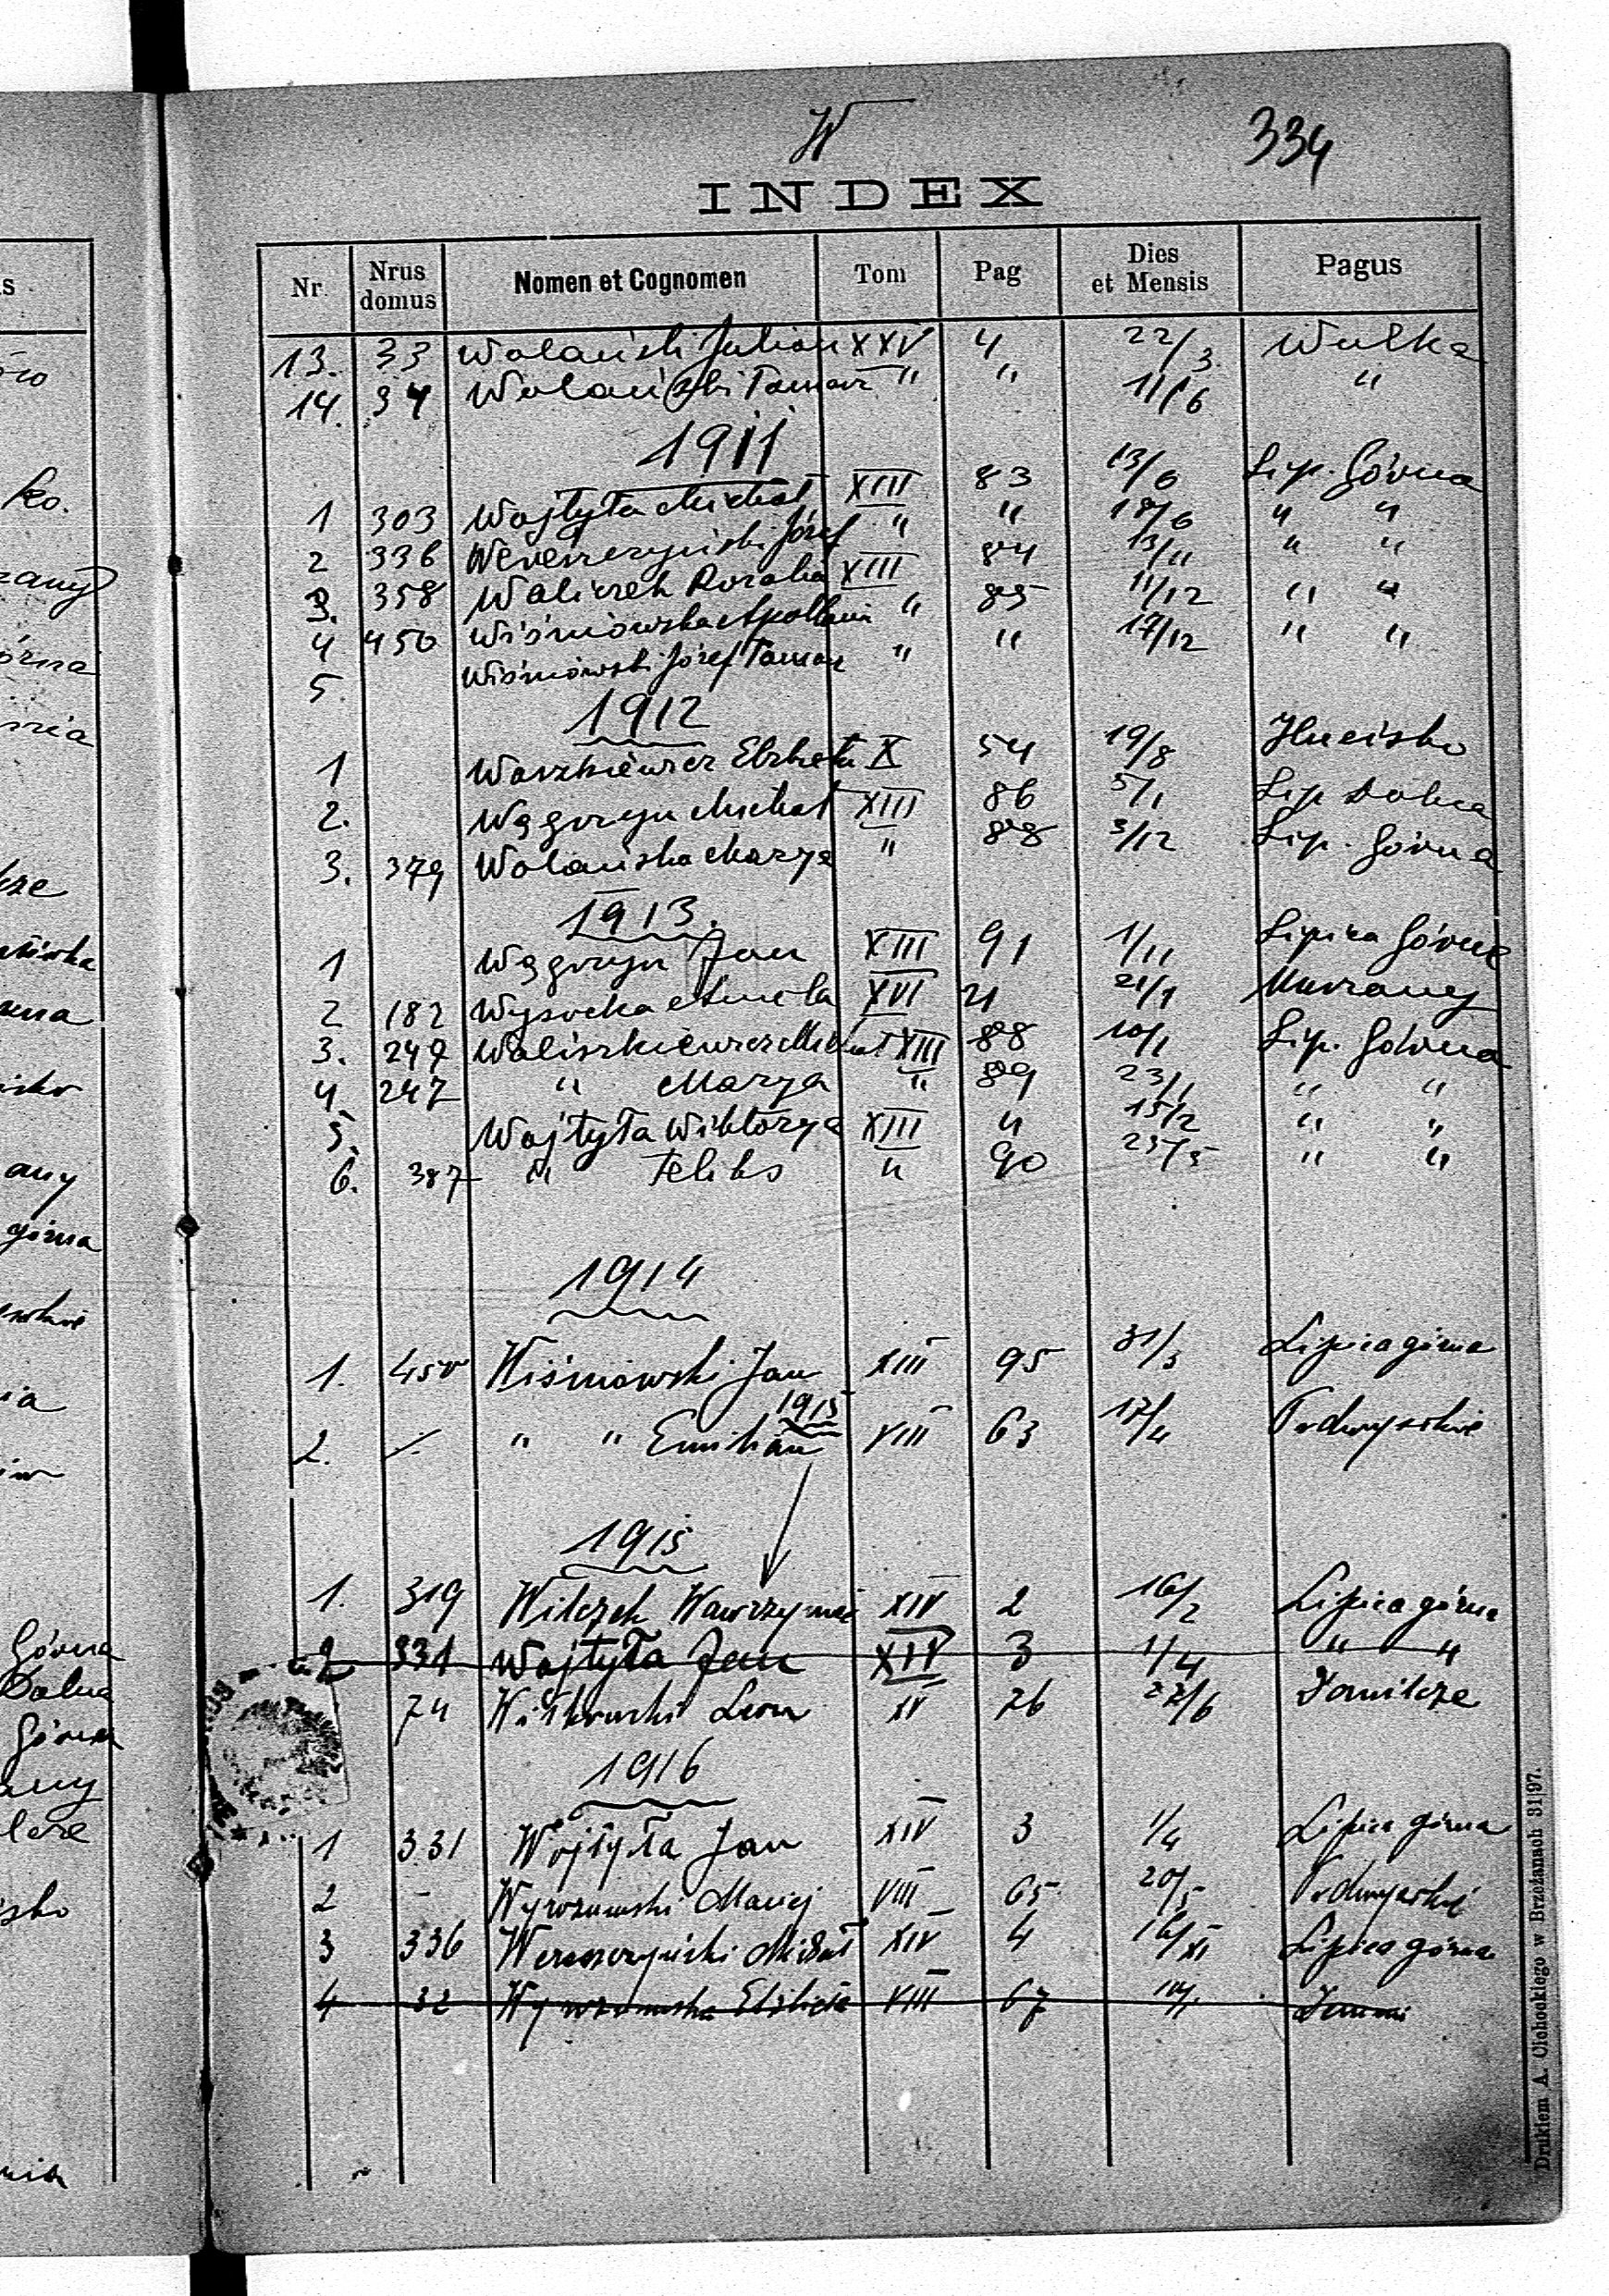 W
334
INDEX
Nr. Nrus domus Nomen et Cognomen Tom Pag Dies et Mensis Pagus
13. 33 Wolański Julian XXV 4 22/3. Wulka
14. 34 Wolański Tomasz " " 11/6 "
1911
1 303 Wojtyła Michał XIII 83 13/6 Lip. Górna
2 336 Wereszczyński Józef " " 18/6 " "
3. 358 Waliczek Rozalia XIII 84 13/11 " "
4 450 Wiśniowska Apollonia " 85 11/12 " "
5. Wiśniowski Józef Tomasz " " 17/12 " "
1912
1 Waszkiewicz Elżbieta X 54 19/8 Hucisko
2. Węgrzyn Michał XIII 86 5/1 Lip Dolna
3. 379 Wolańska Marya " 88 3/12 Lip. Górna
1913.
1 Węgrzyn Jan XIII 91 1/11 Lipica Górna
2 182 Wysocka Aniela XVI 21 21/1 Mieczany
3. 247 Waliszkiewicz Michał XIII 88 10/1 Lip. Górna
4 247 " Marya " 89 23/1 " "
5. Wojtyła Wiktorya XIII " 15/2 " "
6. 387 " Feliks " 90 25/5 " "
1914
1. 450 Wiśniowski Jan XIII 95 31/3 Lipica górna
1915
2. " " Emilian VIII 63 17/4 Podwysokie
1915
1. 319 Wilczek Wawrzyniec XIV 2 16/2 Lipica górna
2 331 Wojtyła Jan XIV 3 1/4 " "
74 Witkowski Leon XV 76 22/6 Danilcze
1916
1 331 Wojtyła Jan XIV 3 1/4 Lipica górna
2 - Wyrozumski Maciej VIII 65 20/5 Podwysokie
3 336 Wereszczyński Michał XIV 4 16/XI Lipica górna
4 32 Wyrozumska Elżbieta VIII 67 10/1
Drukiem A. Cichockiego w Brzeżanach 31|97.